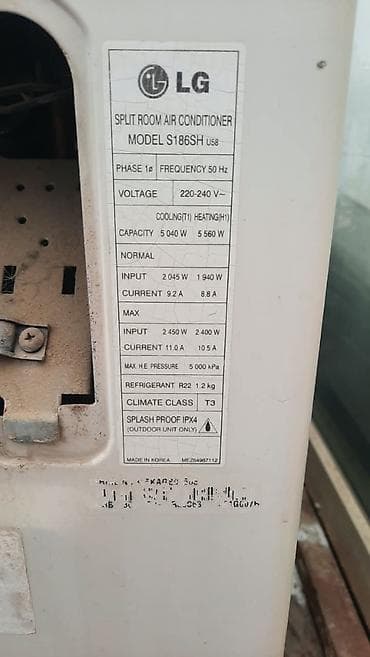 LG
SPLIT ROOM AIR CONDITIONER
MODEL S186SH U58
PHASE 1ø FREQUENCY 50 Hz
VOLTAGE 220-240 V~
COOLING(T1) HEATING(H1)
CAPACITY 5 040 W 5 560 W
NORMAL
INPUT 2 045 W 1 940 W
CURRENT 9.2 A 8.8 A
MAX
INPUT 2 450 W 2 400 W
CURRENT 11.0 A 10.5 A
MAX. H.E. PRESSURE 5 000 kPa
REFRIGERANT R22 1.2 kg
CLIMATE CLASS T3
SPLASH PROOF IPX4
(OUTDOOR UNIT ONLY)
MADE IN KOREA MEZ64967112